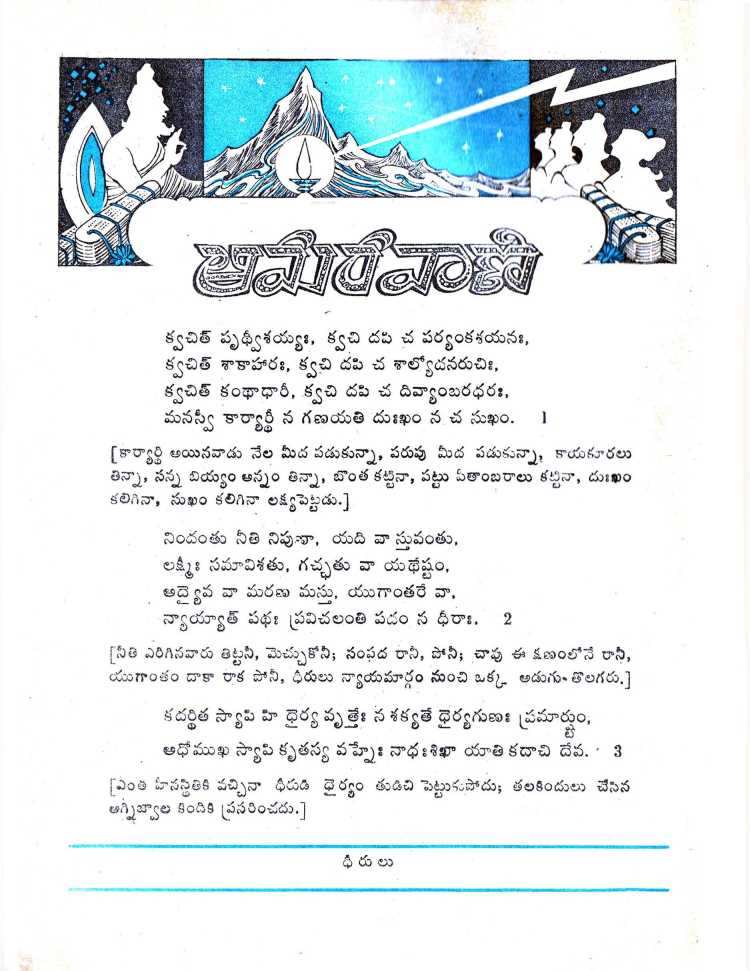 అమరవాణి
క్వచిత్ పృథ్వీశయ్యః, క్వచి దపి చ పర్యంకశయనః,
క్వచిత్ శాకాహారః, క్వచి దపి చ శాల్యోదనరుచిః,
క్వచిత్ కంథాధారీ, క్వచి దపి చ దివ్యాంబరధరః,
మనస్వీ కార్యార్థీ న గణయతి దుఃఖం న చ సుఖం. 1
[కార్యార్థి అయినవాడు నేల మీద పడుకున్నా, పరుపు మీద పడుకున్నా, కాయకూరలు
తిన్నా, సన్న బియ్యం అన్నం తిన్నా, బొంత కట్టినా, పట్టు పీతాంబరాలు కట్టినా, దుఃఖం
కలిగినా, సుఖం కలిగినా లక్ష్యపెట్టడు.]
నిందంతు నీతి నిపుణా, యది వా స్తువంతు,
లక్ష్మీః సమావిశతు, గచ్ఛతు వా యథేష్టం,
అద్యైవ వా మరణ మస్తు, యుగాంతరే వా,
న్యాయ్యాత్ పథః ప్రవిచలంతి పదం న ధీరాః. 2
[నీతి ఎరిగినవారు తిట్టనీ, మెచ్చుకోనీ; సంపద రానీ, పోనీ; చావు ఈ క్షణంలోనే రానీ,
యుగాంతం దాకా రాక పోనీ, ధీరులు న్యాయమార్గం నుంచి ఒక్క అడుగు తొలగరు.]
కదర్థిత స్యాపి హి ధైర్య వృత్తేః న శక్యతే ధైర్యగుణః ప్రమార్ష్టుం,
అధోముఖ స్యాపి కృతస్య వహ్నేః నాధఃశిఖా యాతి కదాచి దేవ. 3
[ఎంతి హీనస్థితికి వచ్చినా ధీరుడి ధైర్యం తుడిచి పెట్టుకుపోదు; తలకిందులు చేసిన
అగ్నిజ్వాల కిందికి ప్రసరించదు.]
ధీరులు